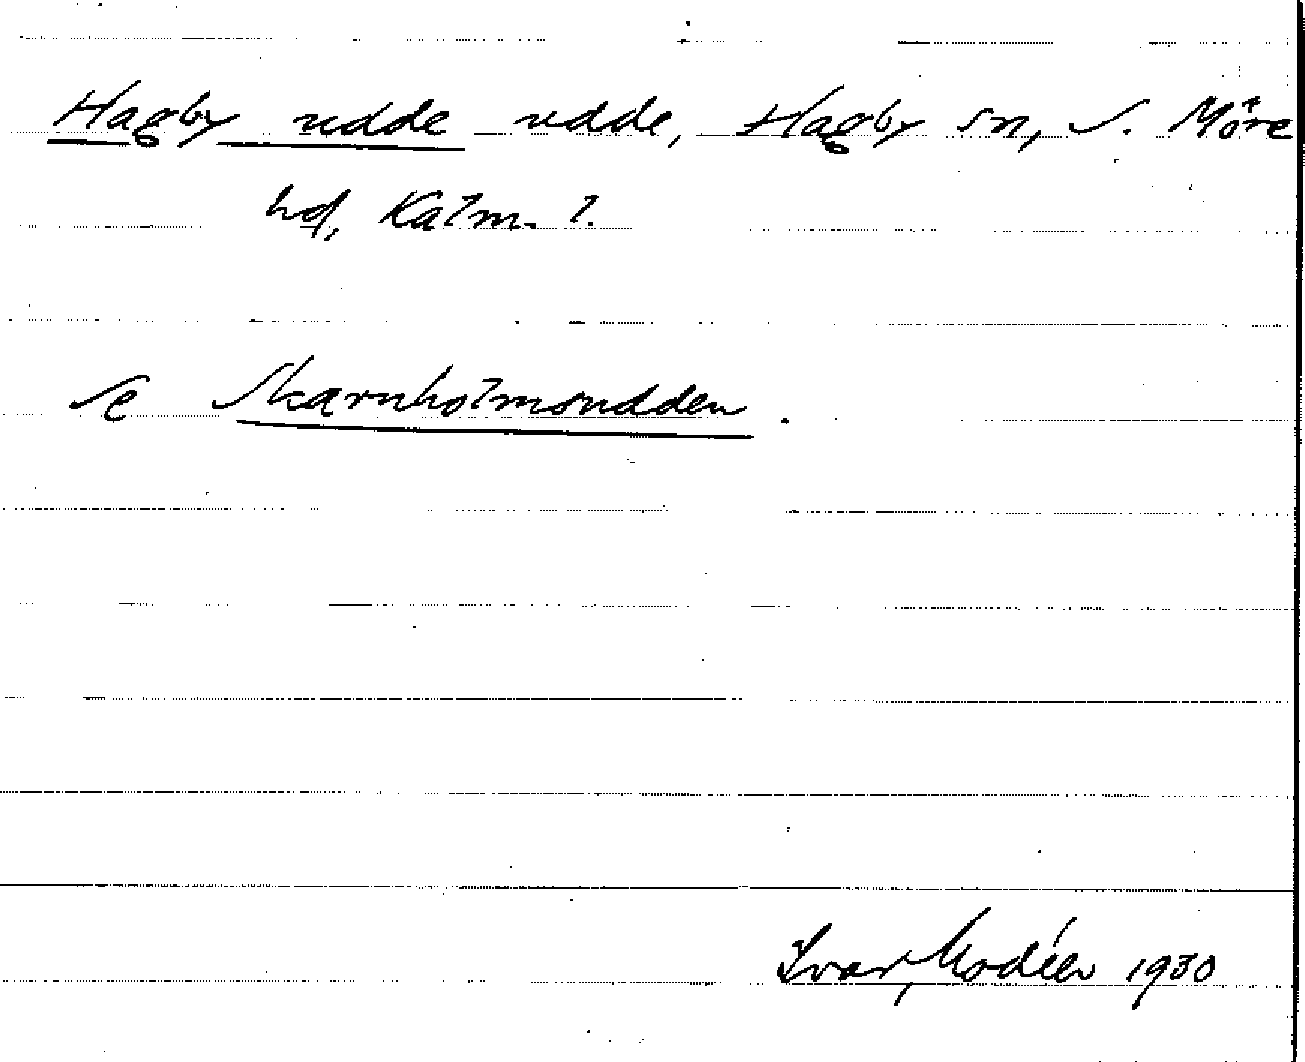 Hagby udde udde, Hagby sn, S. Möre
hd, Kalm. l.
Se Skarnholmsudden.
Ivar Modéer 1930